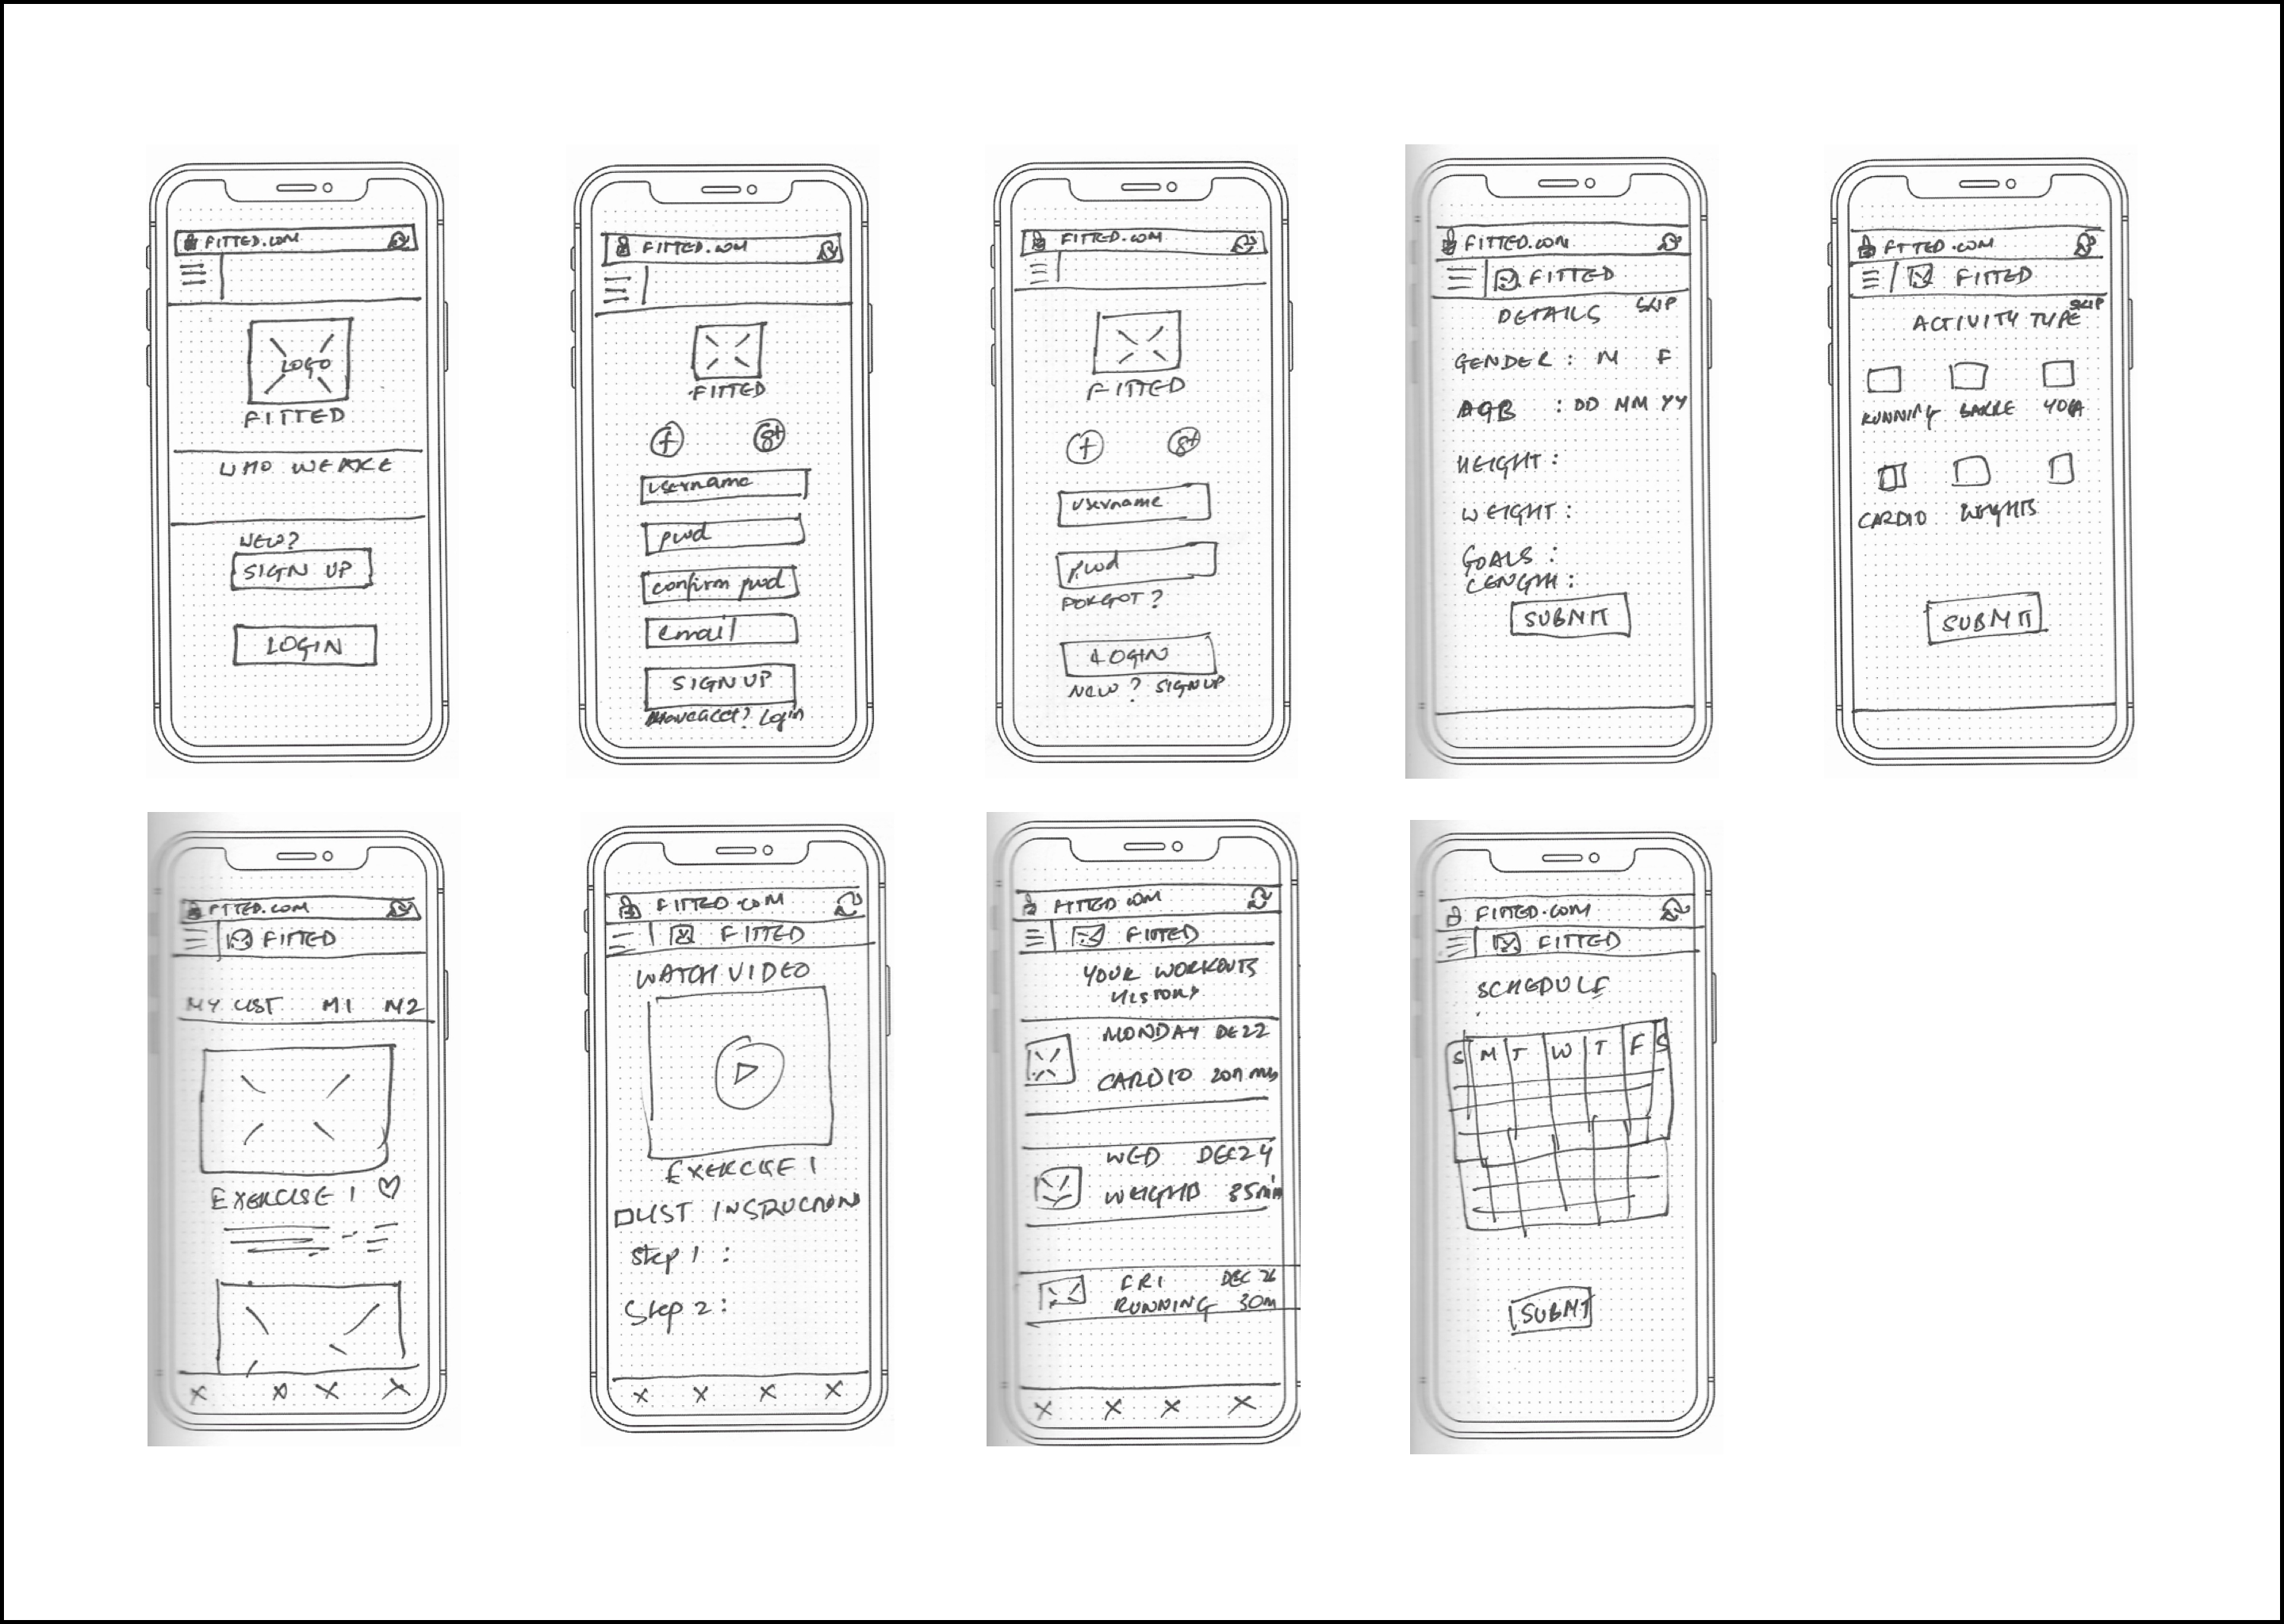 FITTED.COM
LOGO
FITTED
WHO WE ARE
NEW?
SIGN UP
LOGIN
FITTED.COM
FITTED
f g+
username
pwd
confirm pwd
email
SIGN UP
Login
FITTED.COM
FITTED
f g+
username
pwd
FORGOT?
LOGIN
NEW? SIGNUP
FITTED.COM
FITTED
DETAILS SKIP
GENDER : M F
: DD MM YY
HEIGHT :
WEIGHT :
GOALS :
LENGTH :
SUBMIT
FITTED.COM
FITTED
SKIP
ACTIVITY TYPE
RUNNING BARRE YOGA
CARDIO WEIGHTS
SUBMIT
FITTED.COM
FITTED
MY LIST M1 M2
EXERCISE 1
FITTED.COM
FITTED
WATCH VIDEO
EXERCISE 1
LIST INSTRUCTION
Step 1 :
Step 2 :
FITTED.COM
FITTED
YOUR WORKOUTS
HISTORY
MONDAY DE22
CARDIO
WED DEC24
WEIGHTS 35min
FRI DEC 26
RUNNING 30m
FITTED.COM
FITTED
SCHEDULE
S M T W T F S
SUBMIT